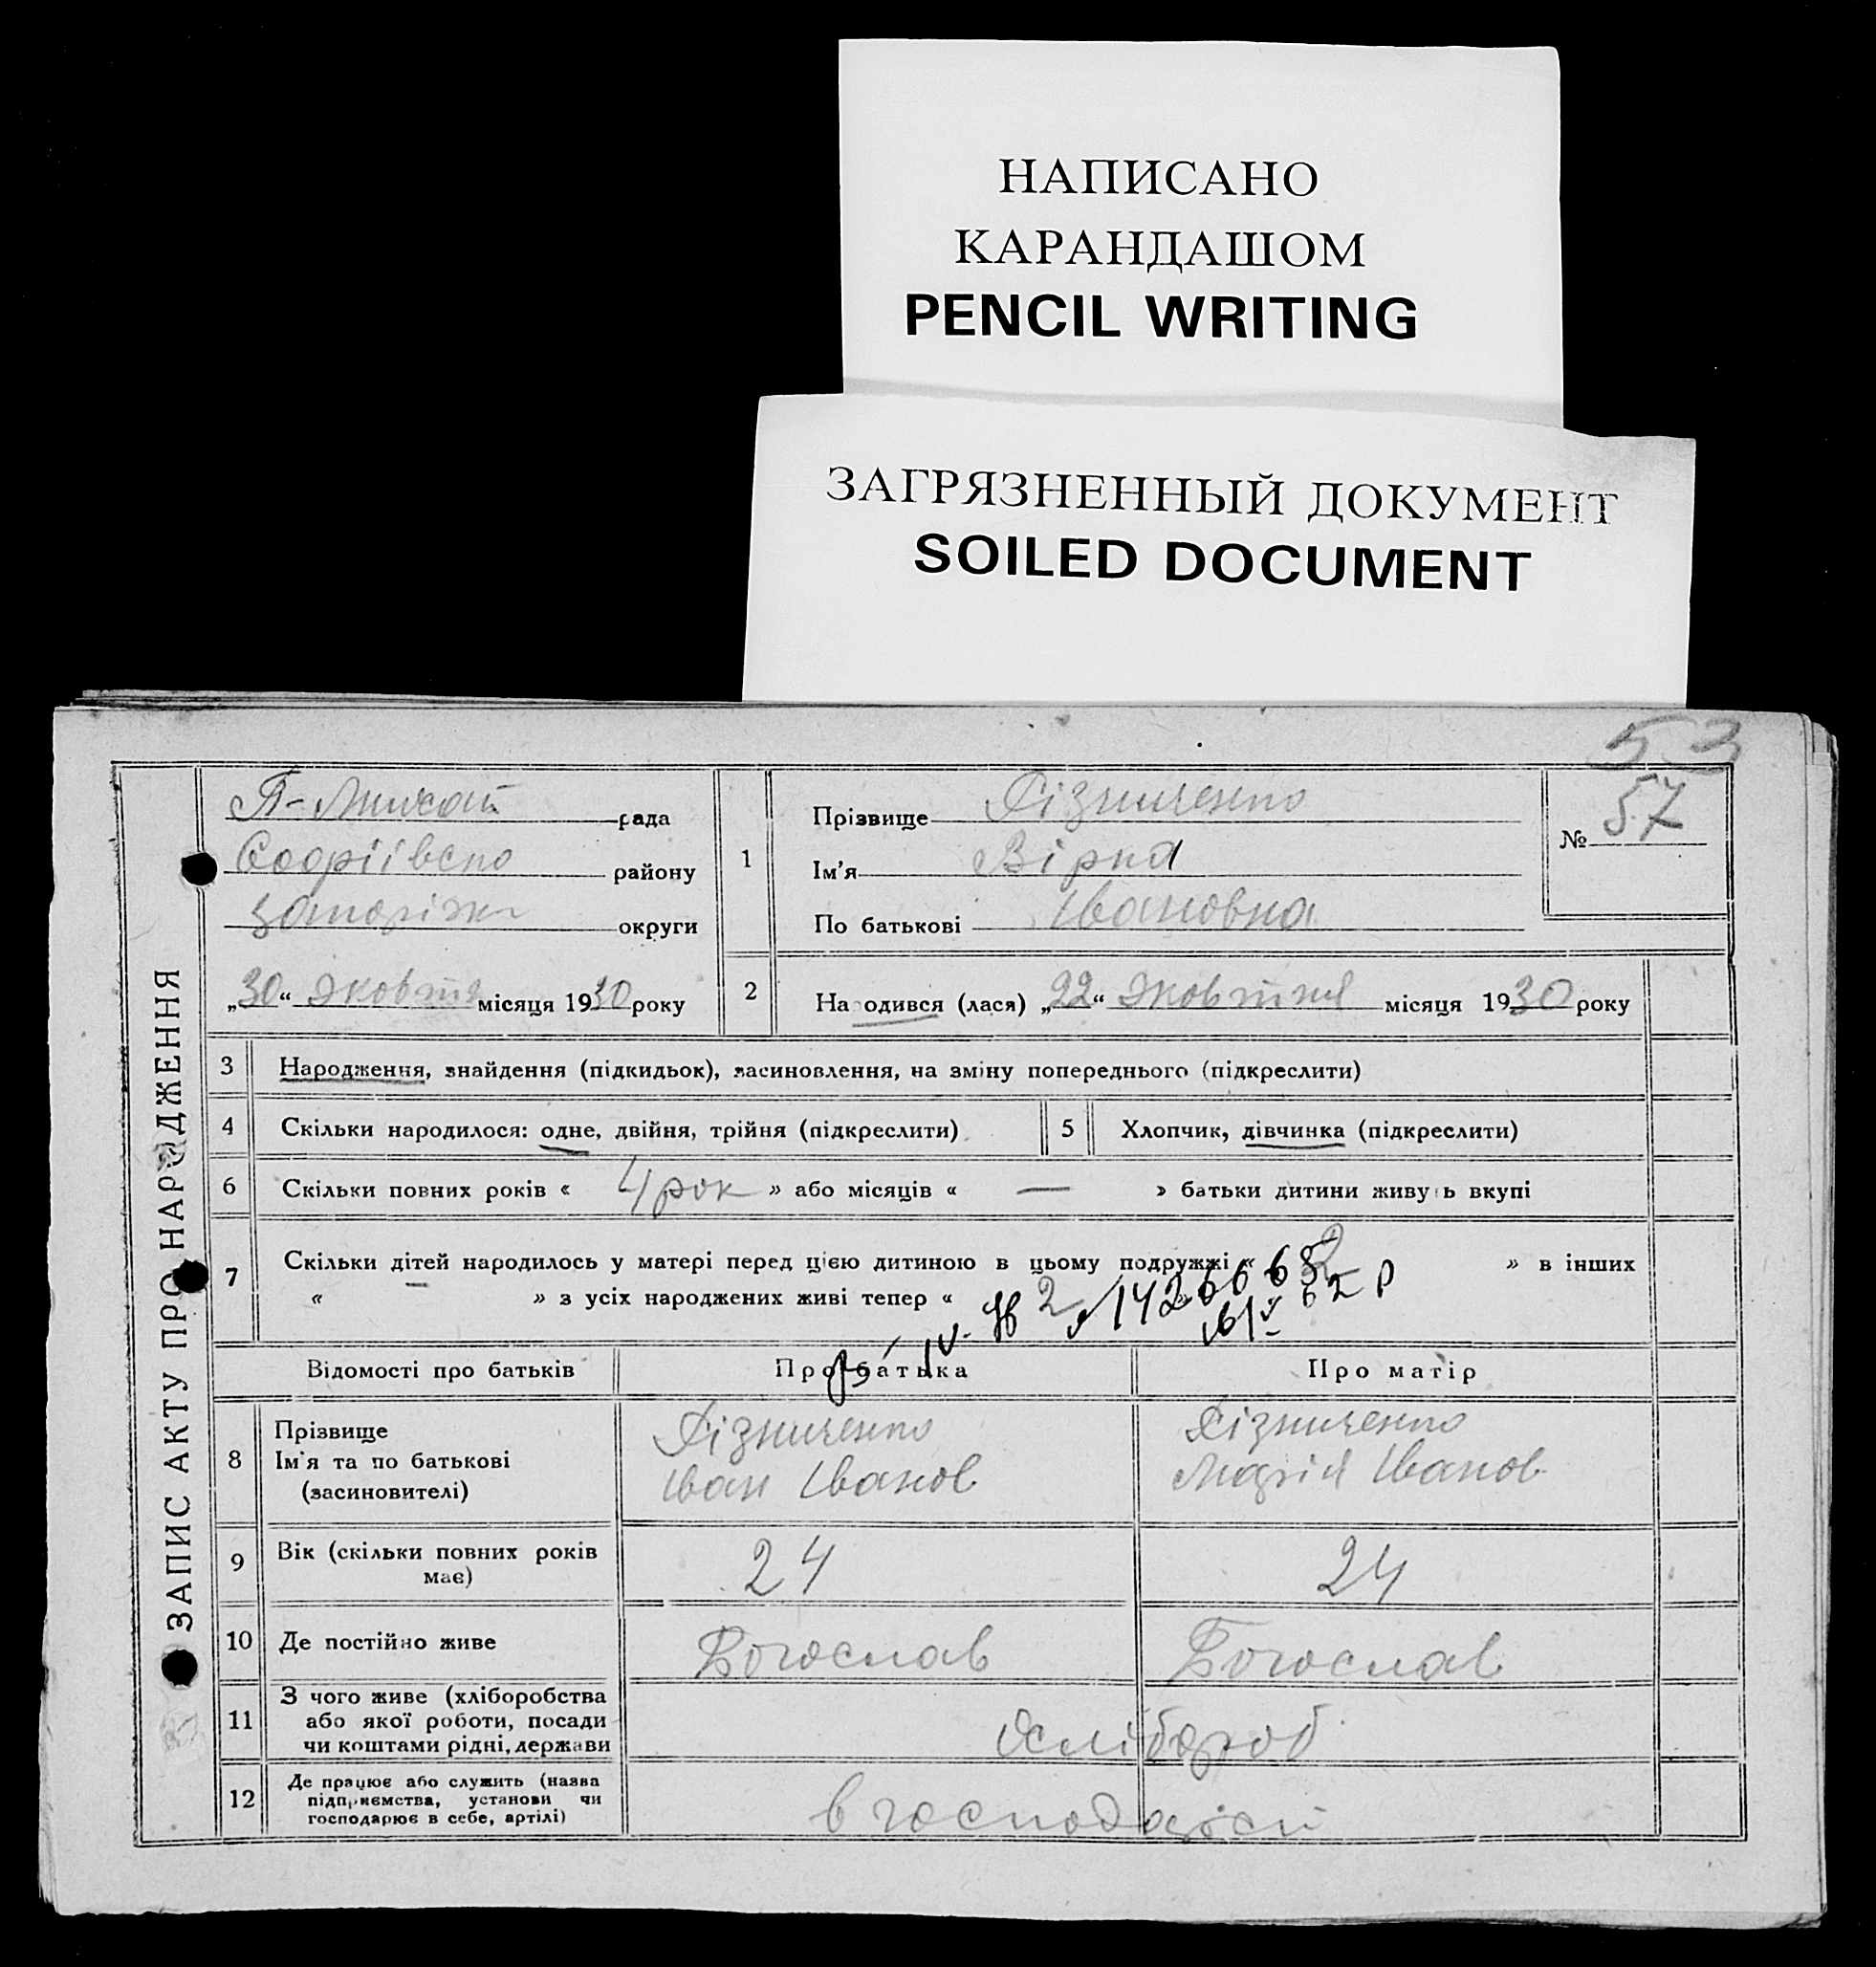 НАПИСАНО
КАРАНДАШОМ
PENCIL WRITING
ЗАГРЯЗНЕННЫЙ ДОКУМЕНТ
SOILED DOCUMENT
53
ЗАПИС АКТУ ПРО НАРОДЖЕННЯ
рада
району
округи
„30“ Жовтня місяця 1930 року
1
Прізвище Різниченко
Ім'я Вірка
По батькові Івановна
№ 57
2
Народився (лася) „22“ Жовтня місяця 1930 року
3 Народження, знайдення (підкидьок), засиновлення, на зміну попереднього (підкреслити)
4 Скільки народилося: одне, двійня, трійня (підкреслити)
5 Хлопчик, дівчинка (підкреслити)
6 Скільки повних років « 4 рок » або місяців « — » батьки дитини живуть вкупі
7 Скільки дітей народилось у матері перед цією дитиною в цьому подружжі « 2 » в інших
« — » з усіх народжених живі тепер « 2
Відомості про батьків Про батька Про матір
8 Прізвище Ім'я та по батькові (засновителі)
Різниченко Різниченко
Іван Іванов Марія Іванов
9 Вік (скільки повних років має) 24 24
10 Де постійно живе Богослав Богослав
11 З чого живе (хліборобства або якої роботи, посади чи коштами рідні, держави Хлібороб
12 Де працює або служить (назва підприємства, установи чи господарює в себе, артілі)